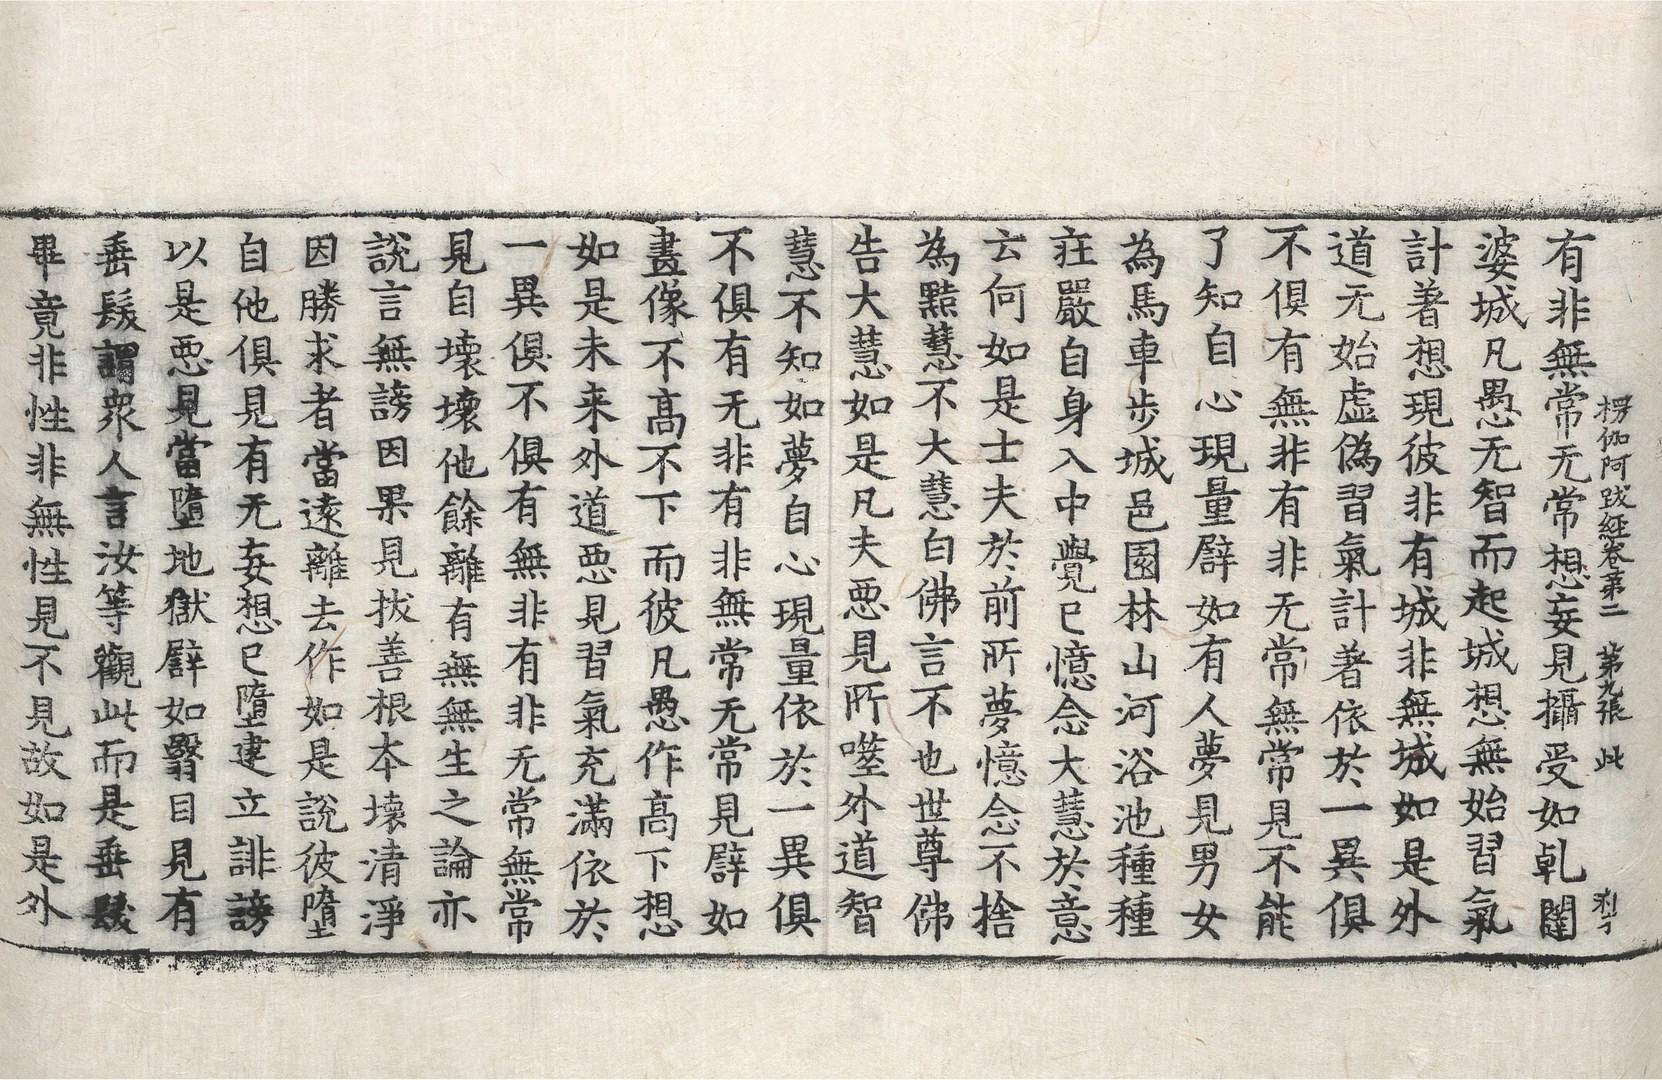 楞伽阿跋經卷第二 第九張 此
有非無常无常想妄見攝受如乹闥
婆城凡愚无智而起城想無始習氣
計著想現彼非有城非無城如是外
道无始虛偽習氣計著依於一異俱
不俱有無非有非无常無常見不能
了知自心現量辟如有人夢見男女
為馬車步城邑園林山河浴池種種
莊嚴自身入中覺已憶念大慧於意
云何如是士夫於前所夢憶念不捨
為黠慧不大慧白佛言不也世尊佛
告大慧如是凡夫悪見所噬外道智
慧不知如夢自心現量依於一異俱
不俱有无非有非無常无常見辟如
畫像不高不下而彼凡愚作高下想
如是未来外道悪見習氣充滿依於
一異俱不俱有無非有非无常無常
見自壞壞他餘離有無無生之論亦
說言無謗因果見拔善根本壞清淨
因勝求者當遠離去作如是說彼墮
自他俱見有无妄想已墮建立誹謗
以是悪見當墮地獄辟如翳目見有
垂髮謂眾人言汝等觀此而是垂髮
畢竟非性非無性見不見故如是外